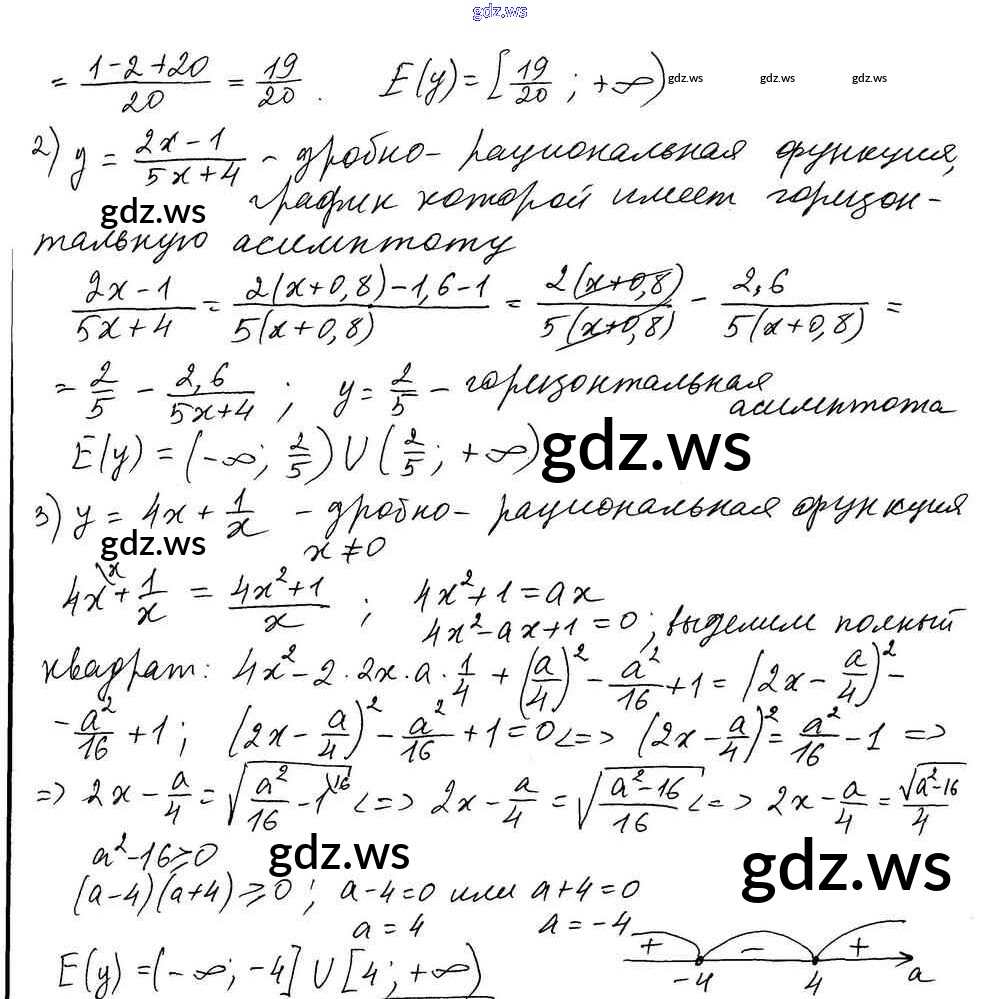 gdz.ws
= (1-2+20)/20 = 19/20. E(y)=[19/20; +∞) gdz.ws gdz.ws gdz.ws
2) y = (2x-1)/(5x+4) - дробно-рациональная функция,
gdz.ws график которой имеет горизон-
тальную асимптоту
(2x-1)/(5x+4) = (2(x+0,8)-1,6-1)/(5(x+0,8)) = (2(x+0,8))/(5(x+0,8)) - 2,6/(5(x+0,8)) =
= 2/5 - 2,6/(5x+4); y = 2/5 - горизонтальная
асимптота
E(y) = (-∞; 2/5) U (2/5; +∞) gdz.ws
3) y = 4x + 1/x - дробно-рациональная функция
gdz.ws x ≠ 0
4x\x + 1/x = (4x²+1)/x; 4x²+1 = ax
4x²-ax+1 = 0; выделим полный
квадрат: 4x² - 2·2x·a·1/4 + (a/4)² - a²/16 + 1 = (2x - a/4)² -
- a²/16 + 1; (2x - a/4)² - a²/16 + 1 = 0 <=> (2x - a/4)² = a²/16 - 1 =>
=> 2x - a/4 = √(a²/16 - 1\16) <=> 2x - a/4 = √((a²-16)/16) <=> 2x - a/4 = √(a²-16)/4
a²-16 ≥ 0 gdz.ws gdz.ws
(a-4)(a+4) ≥ 0; a-4=0 или a+4=0
a = 4 a = -4
+ - +
E(y) = (-∞; -4] U [4; +∞) -4 4 a